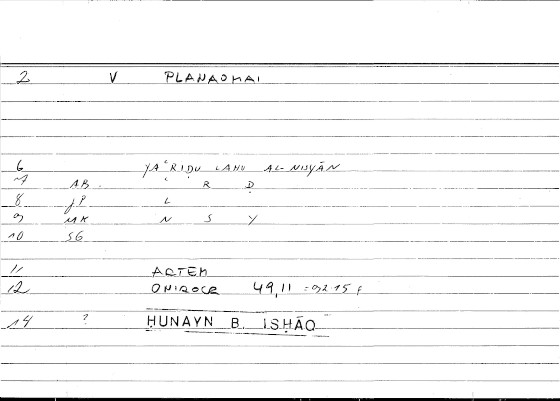 2 V PLANAOMAI
6 YAʿRIḌU LAHU AL-NISYĀN
7 AB. ʿ R Ḍ
8 JP L
9 MK N S Y
10 SG
11 ARTEM
12 ONIROCR 49,11
14 ? ḤUNAYN B. ISḤĀQ